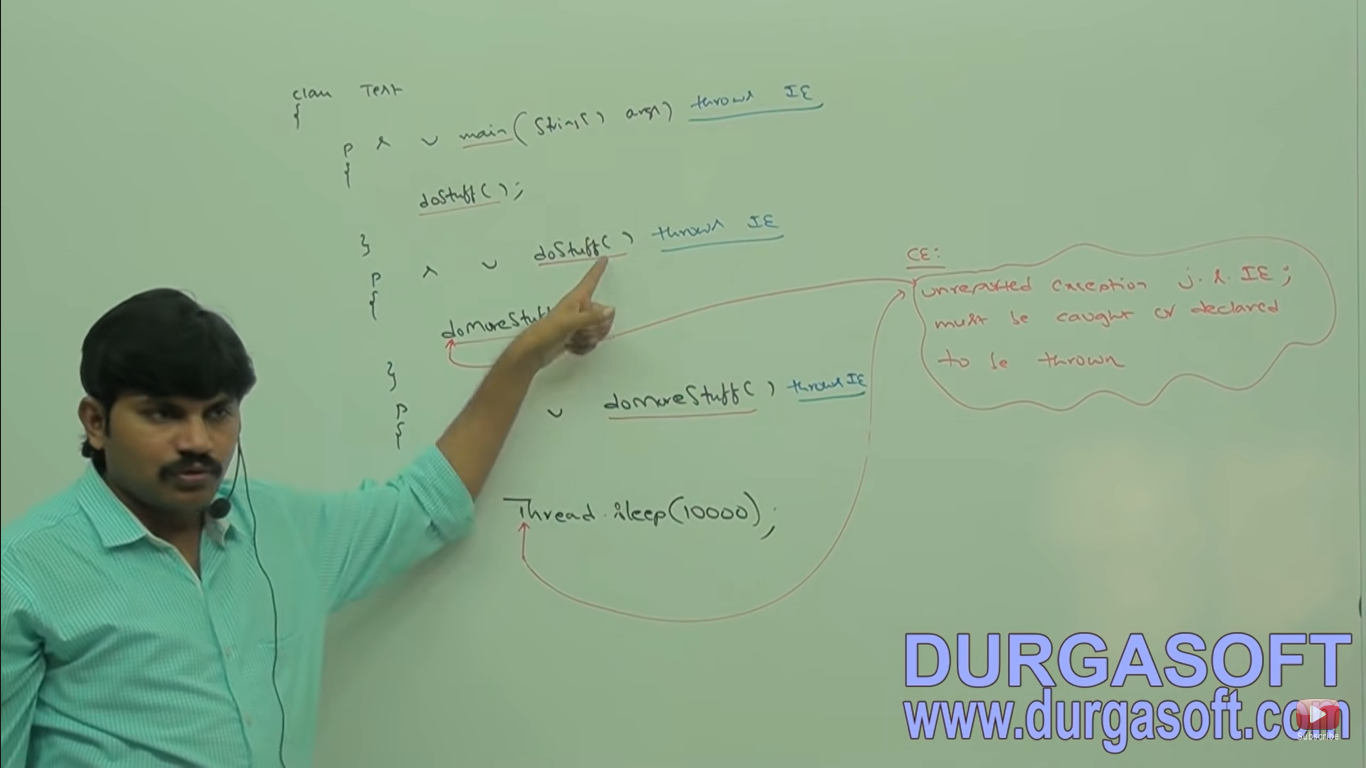 class Test
{
p s v main(String[] args) throws IE
{
doStuff();
}
p s v doStuff() throws IE
{
doMoreStuff
}
p v doMoreStuff() throws IE
{
Thread.sleep(10000);
CE:
unreported exception j.l.IE;
must be caught or declared
to be thrown
DURGASOFT
www.durgasoft.com
Subscribe